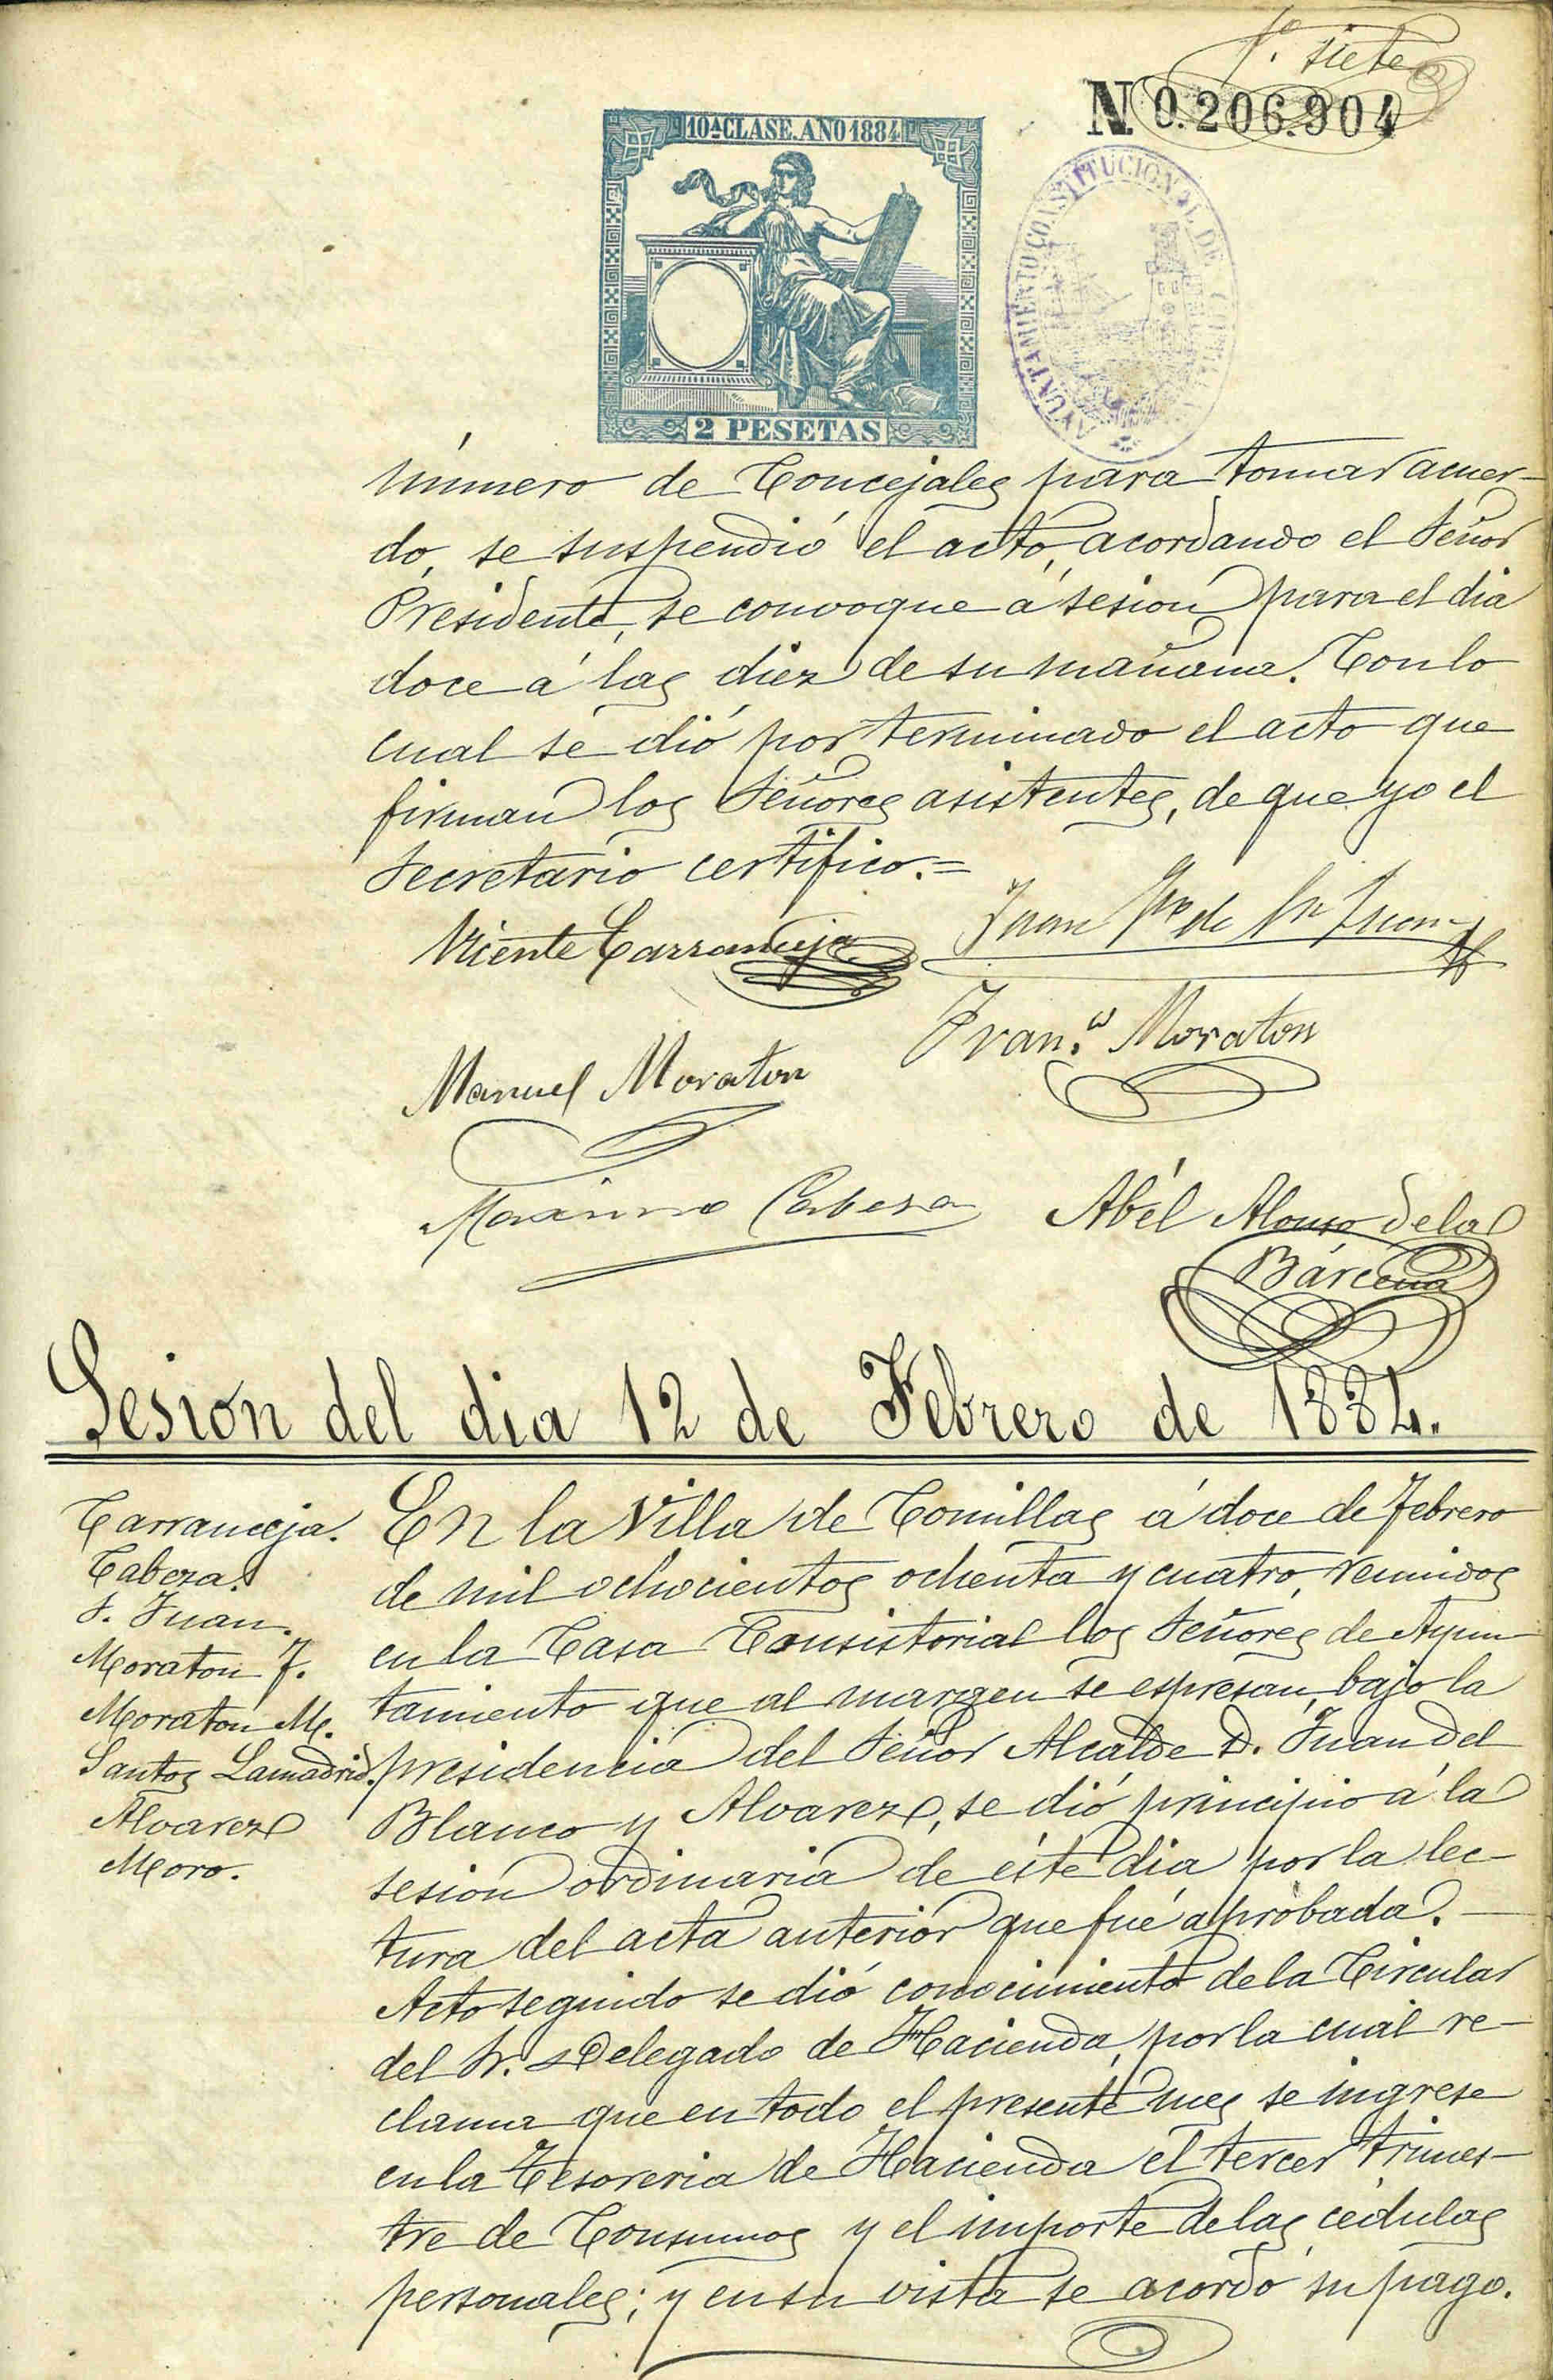 f.º siete
N 0.206.904
10ª CLASE. AÑO 1884
AYUNTAMIENTO CONSTITUCIONAL DE COMILLAS
2 PESETAS
número de Concejales para tomar acuer-
do, se suspendió el acto, acordando el Señor
Presidente, se convoque á sesion para el dia
doce á las diez de su mañana. Con lo
cual se dió por terminado el acto que
firman los Señores asistentes, de que yo el
Secretario certifico.=
Vicente Carranceja
Juan de Sn Juan
Fran.co Moraton
Manuel Moraton
Maximo Cabeza
Abél Alonso de la
Bárcena
Sesión del dia 12 de Febrero de 1884.
Carranceja.
Cabeza.
S. Juan.
Moraton F.
Moraton M.
Santos Lamadrid.
Alvarez
Moro.
En la Villa de Comillas á doce de Febrero
de mil ochocientos ochenta y cuatro, reunidos
en la Casa Consistorial los Señores de Ayun-
tamiento que al margen se espresan, bajo la
presidencia del Señor Alcalde D. Juan del
Blanco y Alvarez, se dió principio á la
sesion ordinaria de éste dia por la lec-
tura del acta anterior que fué aprobada.
Acto seguido se dió conocimiento de la Circular
del Sr. Delegado de Hacienda, por la cual re-
clama que en todo el presente mes se ingrese
en la Tesoreria de Hacienda el tercer trimes-
tre de Consumos y el importe de las cédulas
personales; y en su vista se acordó su pago.